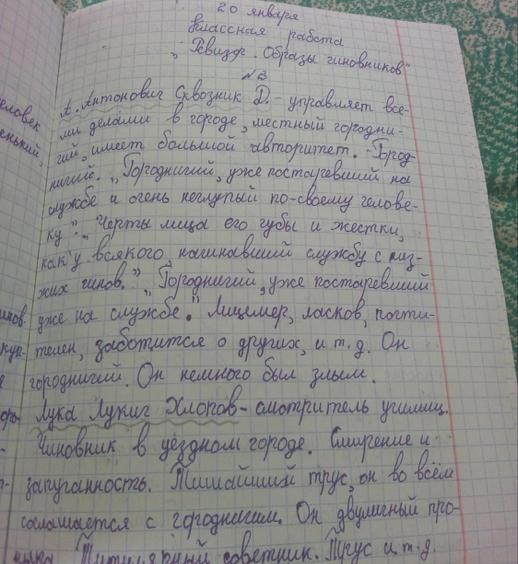 20 января
Классная работа
„Ревизор. Образы чиновников"
№3
А. Антонович Сквозник Д. - управляет все-
ми делами в городе, местный городни-
чий, имеет большой авторитет. Город-
ничий. „Городничий, уже постаревший на
службе и очень неглупый по-своему челове-
ку". „Черты лица его губы и жестки,
как у всякого, начинавший службу с низ-
ких чинов." „Городничий, уже постаревший
уже на службе." Лицемер, ласков, почти-
телен, заботится о других, и т.д. Он
городничий. Он немного был злым.
Лука Лукич Хлопов - смотритель училищ.
Чиновник в уездном городе. Смирение и
запуганность. Тишайший трус, он во всём
соглашается с городничим. Он двуличный про-
Титулярный советник. Трус и т.д.
еловек
енький,